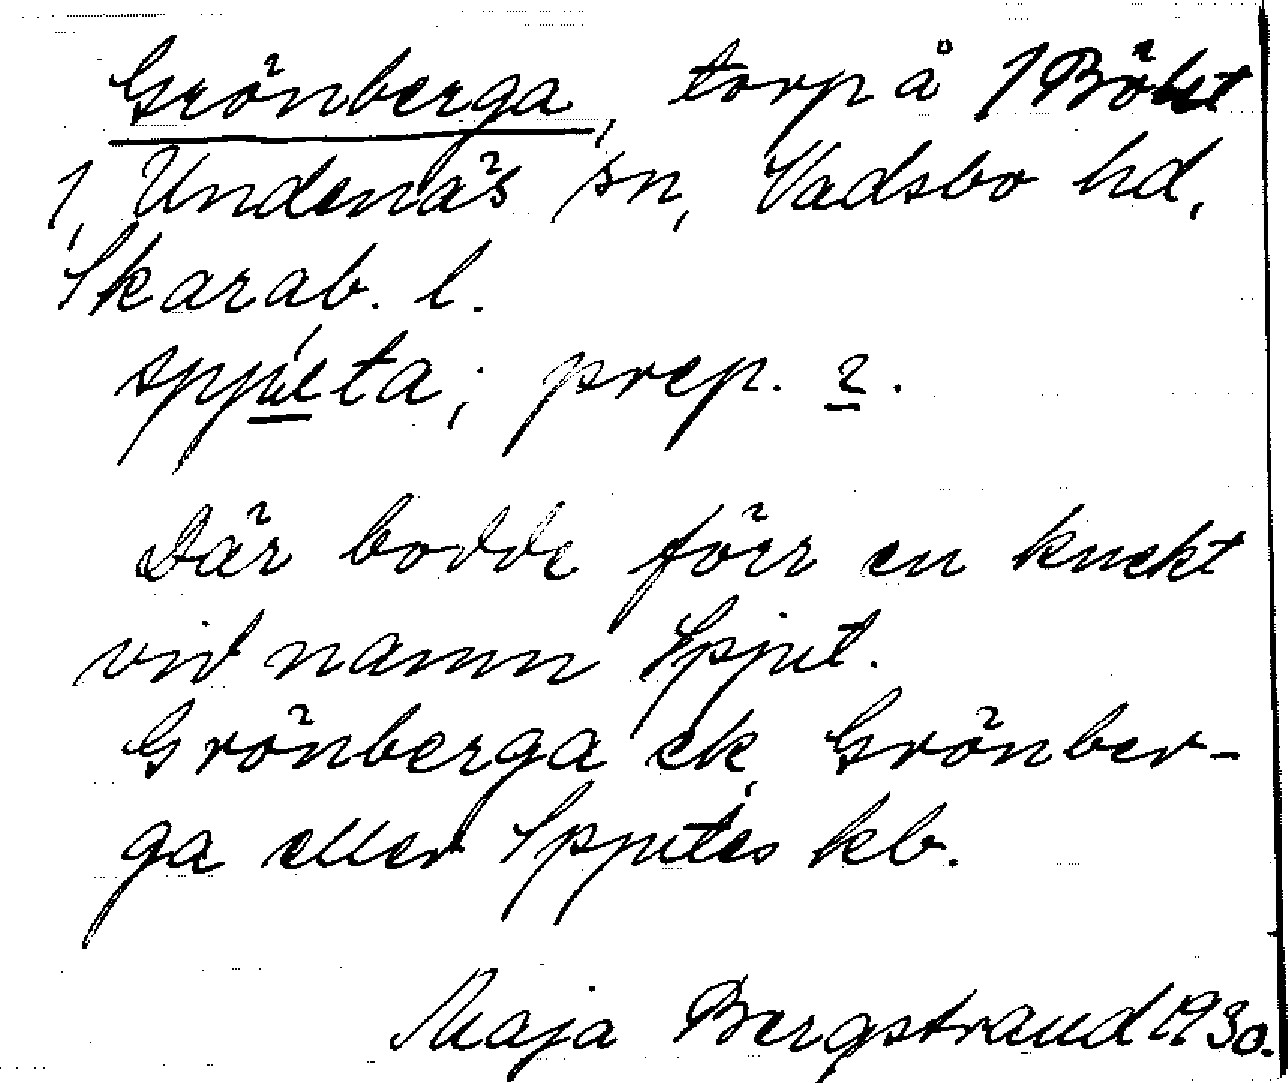 Grönberga, torp å 1 Bölet
1, Undenäs sn, Vadsbo hd,
Skarab. l.
spjùta; prep. 2.
Där bodde förr en knekt
vid namn Spjut.
Grönberga ek, Grönber-
ga eller Spjutes kb.
Maja Bergstrand 1930.